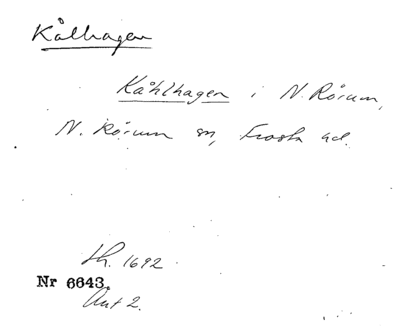 Kålhagen
Kåhlhagen i N. Rörum,
N. Rörum sn, Frosta hd.
Lh. 1692
Nr 6643.
Akt 2.